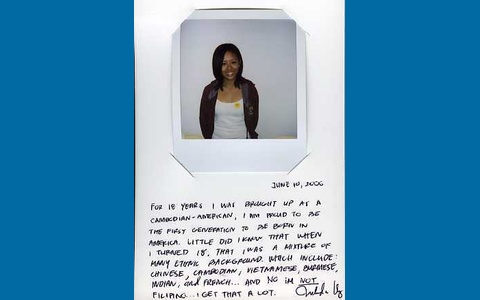 JUNE 10, 2006
FOR 18 YEARS I WAS BROUGHT UP AS A
CAMBODIAN-AMERICAN, I AM PROUD TO BE
THE FIRST GENERATION TO BE BORN IN
AMERICA. LITTLE DID I KNOW THAT WHEN
I TURNED 18, THAT I WAS A MIXTURE OF
MANY ETHNIC BACKGROUND. WHICH INCLUDE:
CHINESE, CAMBODIAN, VIETNAMESE, BURMESE,
INDIAN, and FRENCH... AND NO IM NOT
FILIPINO... I GET THAT A LOT.